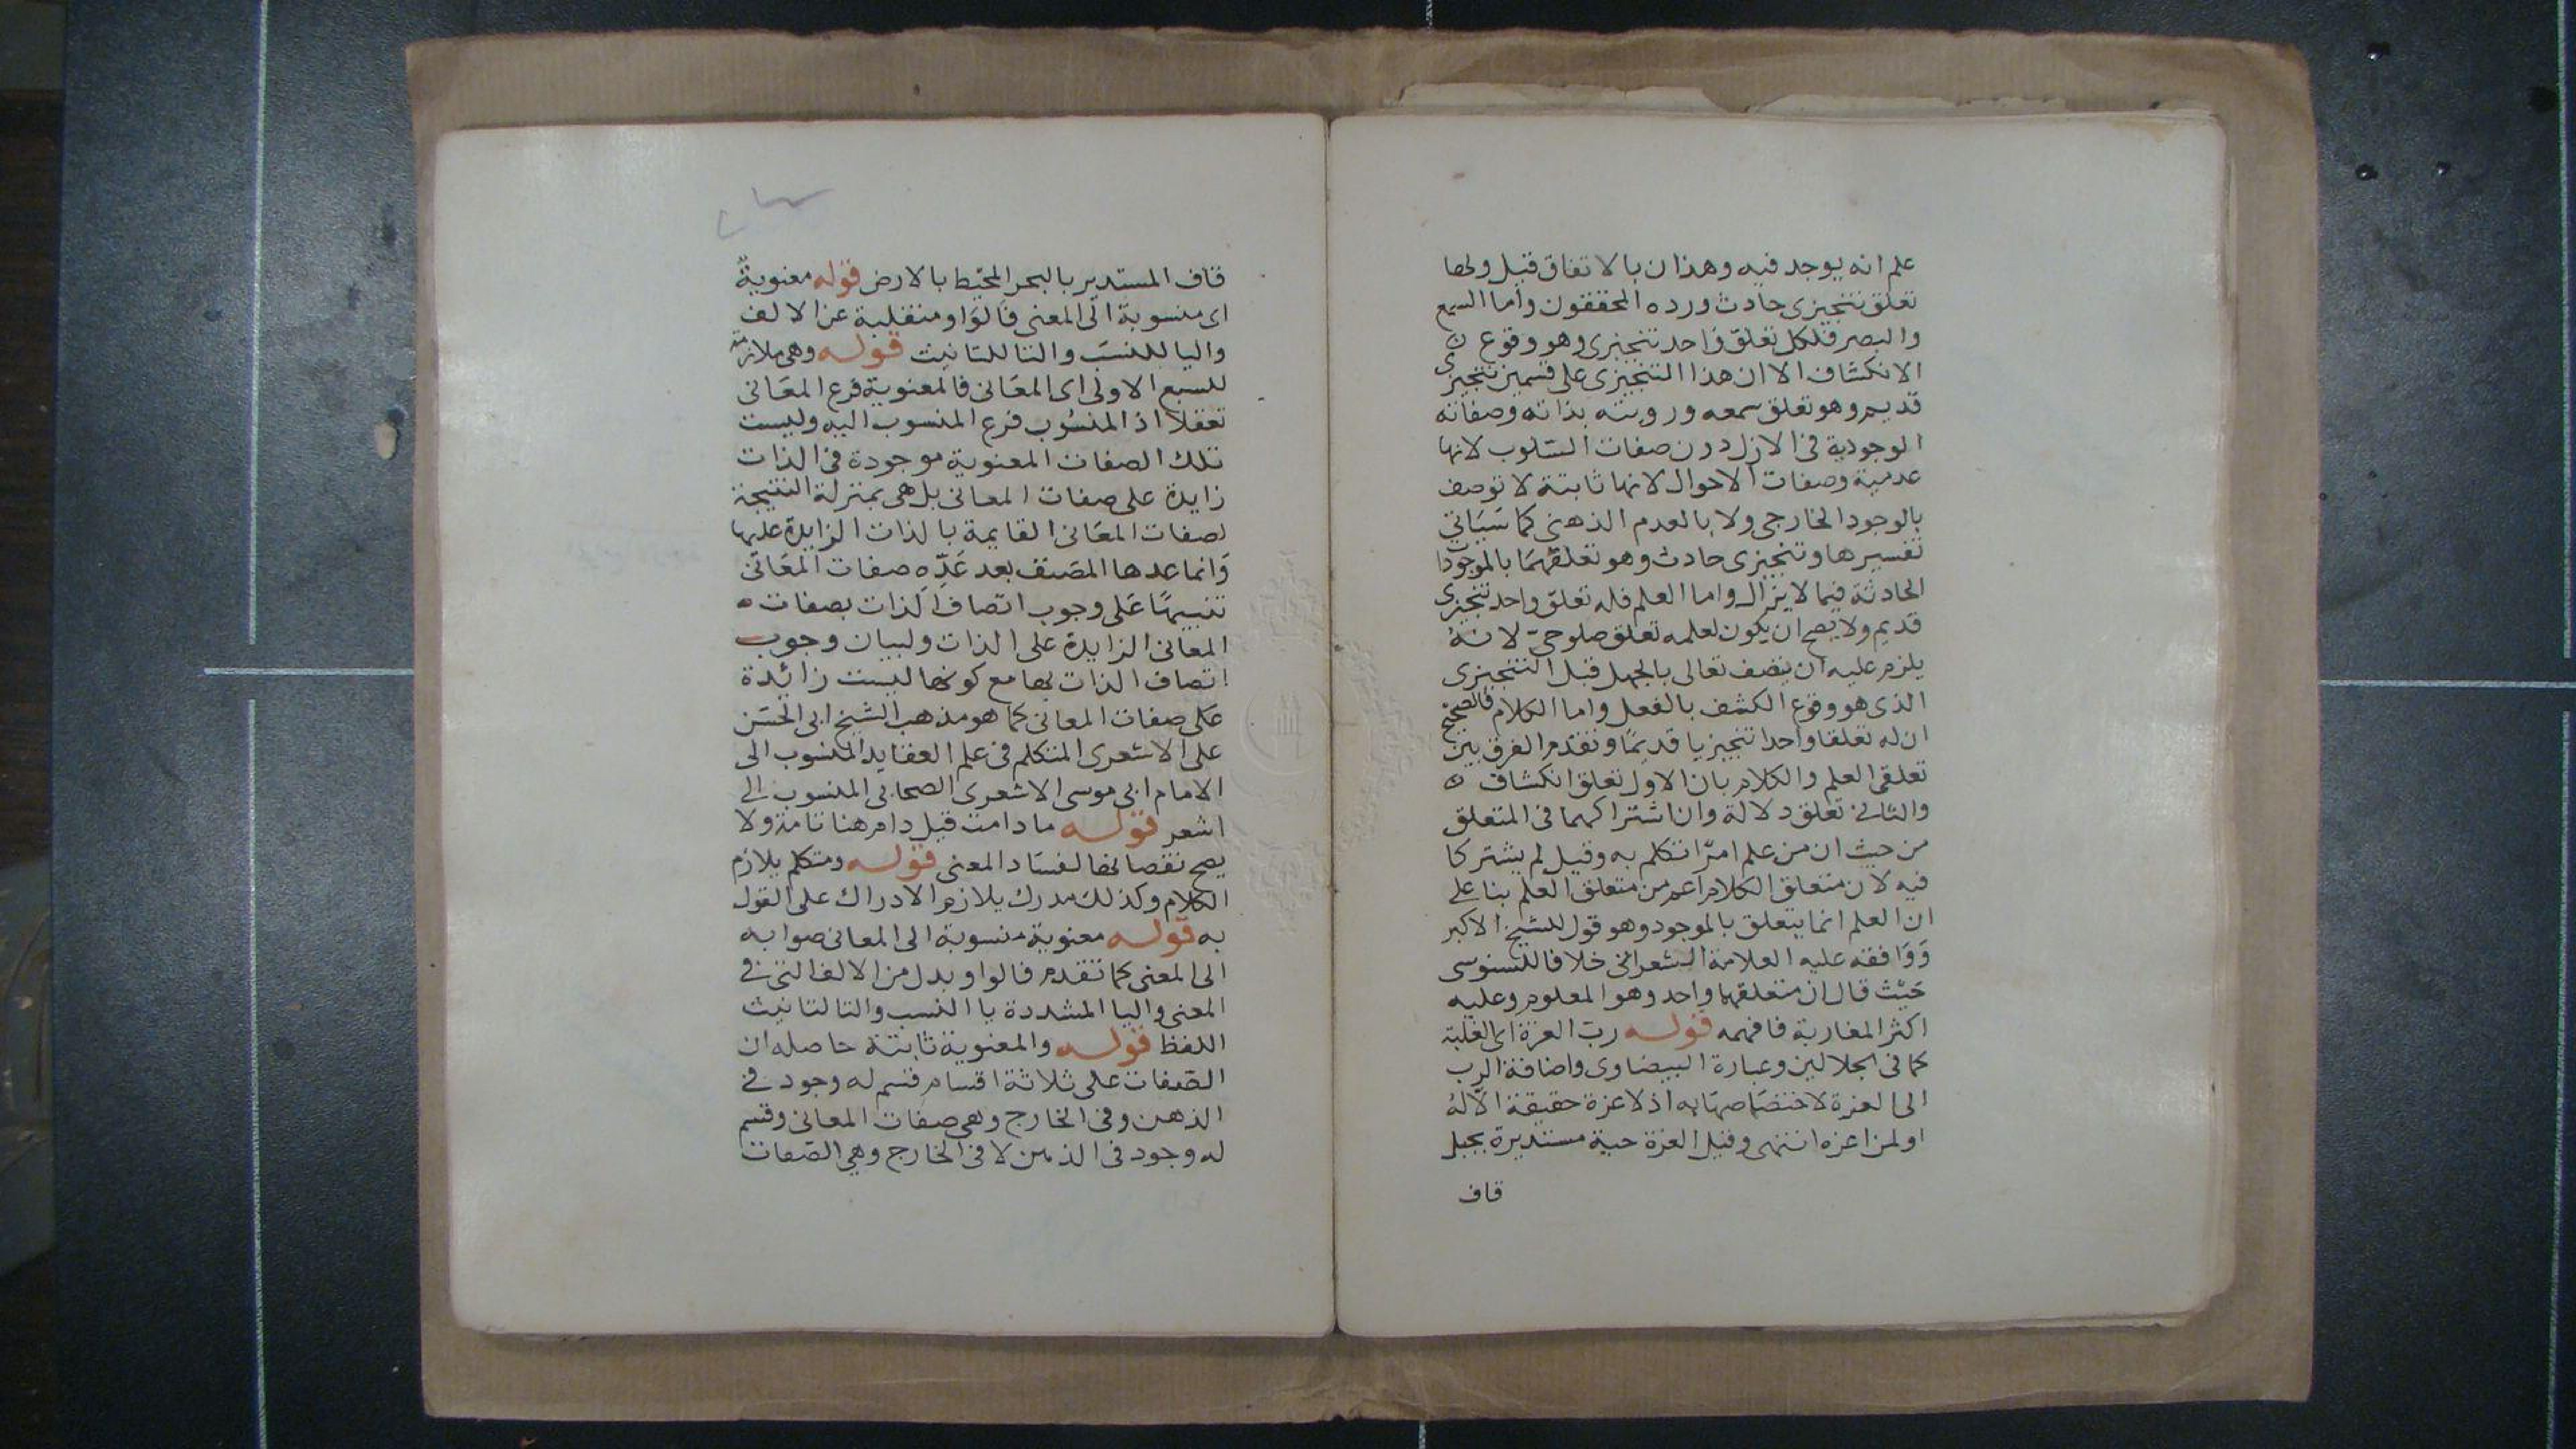 علم انه يوجد فيه وهذان بالاتفاق قيل ولها
تعلق تنجيزى حادث ورده المحققون واما السمع
والبصر فلكل تعلق واحد تنجيزى وهو وقوع
الانكشاف الا ان هذا التنجيزى على قسمين تنجيزى
قديم وهو تعلق سمعه ورويته بذاته وصفاته
الوجودية فى الازل دون صفات السلوب لانها
عدمية وصفات الاحوال لانها ثابتة لا توصف
بالوجود الخارجى ولا بالعدم الذهنى كما سياتى
تفسيرها وتنجيزى حادث وهو تعلقهما بالموجودا
الحادثة فيما لا يزال واما العلم فله تعلق واحد تنجيزى
قديم ولا يصح ان يكون لعلمه تعلق صلوحى لانه
يلزم عليه ان يتصف تعالى بالجهل قبل التنجيزى
الذى هو وقوع الكشف بالفعل واما الكلام فالصحيح
ان له تعلقا واحدا تنجيزيا قديما وتقدم الفرق بين
تعلقى العلم والكلام بان الاول تعلق انكشاف
والثانى تعلق دلالة وان اشتراكهما فى المتعلق
من حيث ان من علم امرا تكلم به وقيل لم يشتركا
فيه لان متعلق الكلام اعم من متعلق العلم بنا على
ان العلم انما يتعلق بالموجود وهو قول للشيخ الاكبر
ووافقه عليه العلامة الشعرانى خلافا للسنوسى
حيث قال ان متعلقهما واحد وهو المعلوم وعليه
اكثر المغاربة فافهمه قوله رب العزة اى الغلبة
كما فى الجلالين وعبارة البيضاوى واضافة الرب
الى العزة لاختصاصها به اذ لا عزة حقيقة الا له
او لمن اعزه انتهى وقيل العزة حية مستديرة بجبل
قاف
قاف المستدير بالبحر المحيط بالارض قوله معنوية
اى منسوبة الى المعنى فالواو منقلبة عن الالف
واليا للنسب والتا للتانيث قوله وهى ملازمة
للسبع الاولى اى المعانى فالمعنوية فرع المعانى
تعقلا اذ المنسوب فرع المنسوب اليه وليست
تلك الصفات المعنوية موجودة فى الذات
زايدة على صفات المعانى بل هى بمنزلة النتيجة
لصفات المعانى القايمة بالذات الزايدة عليها
وانما عدها المصنف بعد عده صفات المعانى
تنبيها على وجوب اتصاف الذات بصفات
المعانى الزايدة على الذات ولبيان وجوب
اتصاف الذات بها مع كونها ليست زائدة
على صفات المعانى كما هو مذهب الشيخ ابى الحسن
على الاشعرى المتكلم فى علم العقايد المنسوب الى
الامام ابى موسى الاشعرى الصحابى المنسوب الى
اشعر قوله ما دامت قيل دام هنا تامة ولا
يصح نقصانها لفساد المعنى قوله ومتكلم يلازم
الكلام وكذلك مدرك يلازم الادراك على القول
به قوله معنوية منسوبة الى المعانى صوابه
الى المعنى كما تقدم فالواو بدل من الالف التى فى
المعنى واليا المشددة يا النسب والتا لتانيث
اللفظ قوله والمعنوية ثابتة حاصله ان
الصفات على ثلاثة اقسام قسم له وجود فى
الذهن وفى الخارج وهى صفات المعانى وقسم
له وجود فى الذهن لا فى الخارج وهى الصفات